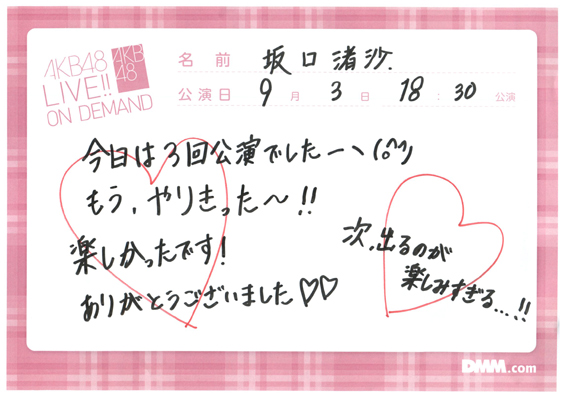 AKB48
LIVE!!
ON DEMAND
AKB
48
名前 坂口渚沙.
公演日 9月3日 18:30公演
今日は3回公演でしたーヽ(^^)
もう、やりきった〜!!
楽しかったです!
ありがとうございました♡♡
次、出るのが
楽しみすぎる...!!
DMM.com